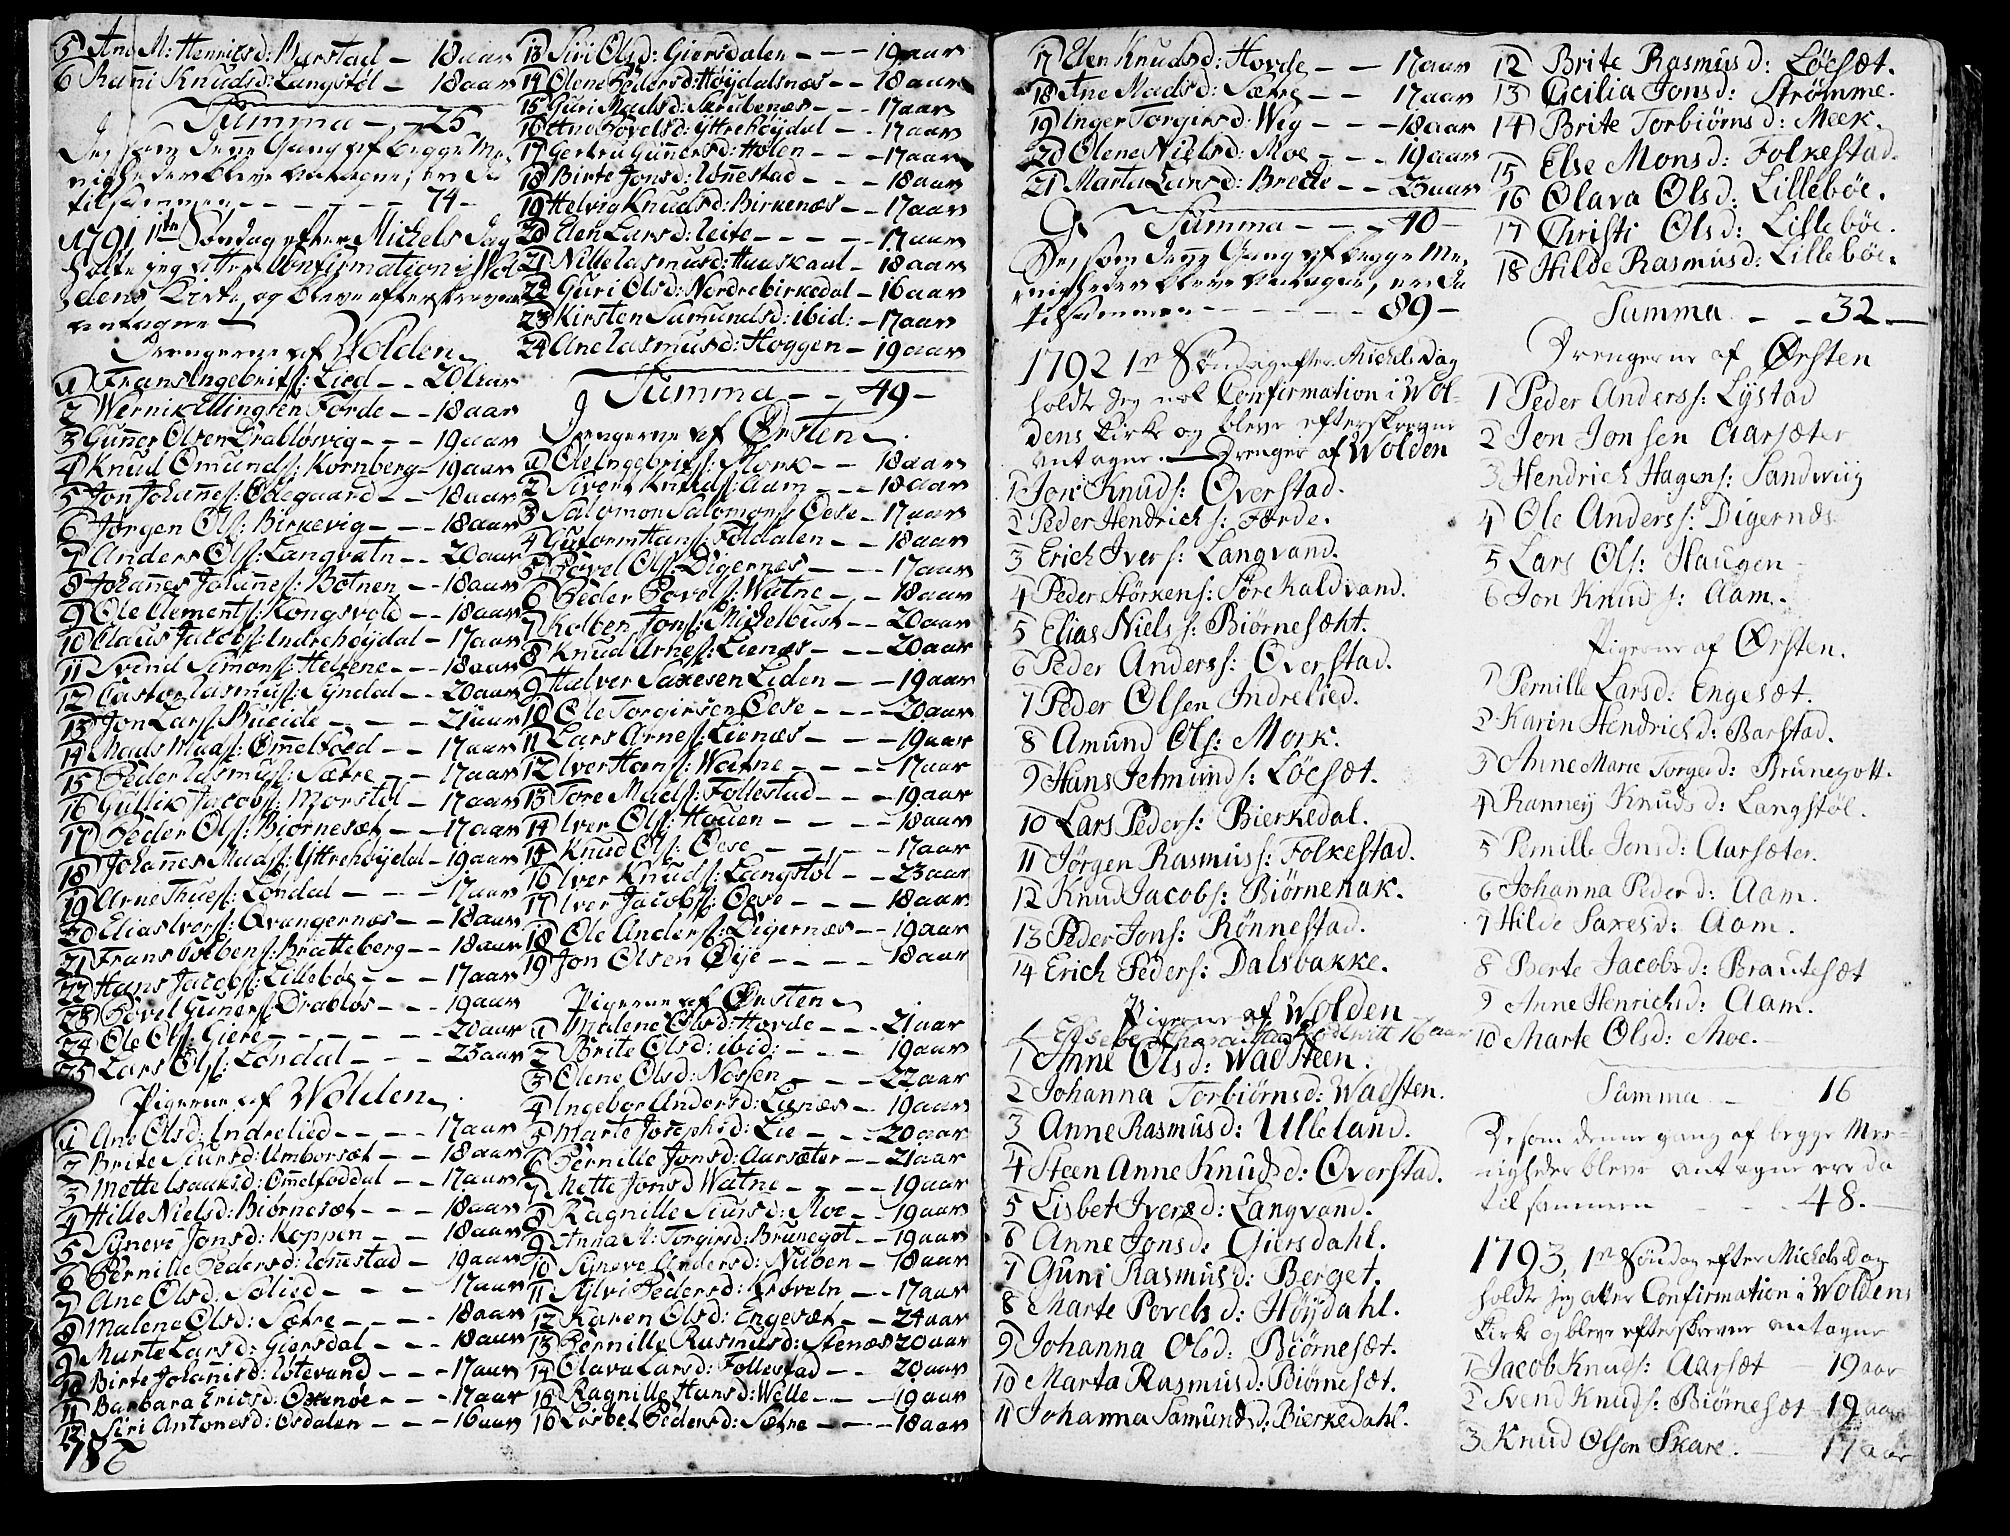 5 Ane M: Henriksd: Barstad — 18 aar
6 Rani Knudsd: Langstøl — 18 aar
Summa — 25
De som denne Gang af begge Me-
nigheder bleve antagne, ere da
tilsammen — 74 —
1791 1ste Søndag efter Michels Dag
holte jeg atter Confirmation i Wol
dens Kirke, og bleve efterskrevne
antagne —
Drengerne af Wolden
1 Frans Ingebrits: Lied — 20 aar
2 Wernik Ellingsen Førde — 18 aar
3 Guner Olsen Drabløsvig — 19 aar
4 Knud Omunds: Kornberg — 19 aar
5 Jon Johanes: Ødegaard — 18 aar
6 Jørgen Ols: Birkevig — 18 aar
7 Anders Ols: Langvatn — 20 aar
8 Johanes Johanes: Botnen — 18 aar
9 Ole Clements: Kongsvold — 18 aar
10 Claus Jacobs: Indrehøydal — 17 aar
11 Svend Simons: Helsene — 18 aar
12 Castor Rasmus: Syndal — 20 aar
13 Jon Lars: Bueide — 21 aar
14 Mads Mads: Omelfoed — 17 aar
15 Peder Rasmus: Sætre — 17 aar
16 Gullik Jacobs: Morstøl — 17 aar
17 Peder Ols: Biørnesæt — 17 aar
18 Johannes Mads: Yttrehøydal — 19 aar
19 Arne Thues: Løndal — 17 aar
20 Elias Ivers: Qvangernæs — 18 aar
21 Frans Esbens: Bratteberg — 18 aar
22 Hans Jacobs: Lillebøe — 17 aar
23 Povel Guners: Drabløs — 19 aar
24 Ole Ols: Giere — 20 aar
25 Lars Ols: Løndal — 23 aar
Pigerne af Wolden
1 Ane Olsd: Indrelied — 17 aar
2 Brite Siursd: Umborsæt — 18 aar
3 Mette Isaaksd: Omelfoddal — 17 aar
4 Hille Nielsd: Biørnesæt — 18 aar
5 Syneve Jonsd: Koppen — 18 aar
6 Pernille Pedersd: Rønestad — 19 aar
7 Ane Olsd: Solied — 17 aar
8 Malene Olsd: Sætre — 18 aar
9 Marte Larsd: Giersdal — 18 aar
10 Birte Johanisd: Rotevand — 17 aar
11 Barbara Ericsd: Ostenøe — 17 aar
12 Siri Antonesd: Osdalen — 16 aar
786
13 Siri Olsd: Giersdalen — 19 aar
14 Olene Pedersd: Høydalsnæs — 18 aar
15 Guri Madsd: Skrubenæs — 17 aar
16 Ane Povelsd: Yttrehøydal — 17 aar
17 Gertru Gunersd: Holen — 17 aar
18 Birte Jonsd: Rønestad — 18 aar
19 Helvig Knudsd: Birkenæs — 17 aar
20 Elen Larsd: Leite — 17 aar
21 Nille Rasmusd: Haaskaal — 18 aar
22 Guri Olsd: Nordrebirkedal — 16 aar
23 Kirsten Samundsd: ibid: — 17 aar
24 Ane Rasmusd: Hoggen — 19 aar
Summa — 49 —
Drengerne af Ørsten
1 Ole Ingebrits: Mork — 18 aar
2 Sivert Knuds: Aam — 18 aar
3 Salomon Salomons: Oese — 17 aar
4 Gutorm Hans: Foldalen — 18 aar
5 Povel Ols: Digernæs — 17 aar
6 Peder Povels: Watne — 18 aar
7 Kolben Jons: Mickelbust — 20 aar
8 Knud Arnes: Lienæs — 20 aar
9 Halver Saxesen Liden — 19 aar
10 Ole Torgirsen Oese — 20 aar
11 Lars Arnes: Lienæs — 19 aar
12 Iver Hans: Watne — 17 aar
13 Tore Mads: Follestad — 19 aar
14 Iver Ols: Houen — 18 aar
15 Knud Ols: Oese — 17 aar
16 Iver Knuds: Langstøl — 23 aar
17 Iver Jacobs: Oese — 18 aar
18 Ole Anders: Digernæs — 19 aar
19 Jon Olsen Øye — 18 aar
Pigerne af Ørsten
1 Malene Olsd: Hovde — 21 aar
2 Brite Olsd: ibid: — 19 aar
3 Olene Olsd: Nossen — 22 aar
4 Ingebor Andersd: Lienæs — 19 aar
5 Marte Josephsd: Lie — 20 aar
6 Pernille Jonsd: Aarsæter — 21 aar
7 Mette Jonsd Watne — 19 aar
8 Ragnille Siursd: Moe — 19 aar
9 Anna M: Torgirsd: Brunegot — 19 aar
10 Syneve Andersd: Nuben — 18 aar
11 Sylvi Pedersd: Krøveln — 17 aar
12 Karen Olsd: Engesæt — 24 aar
13 Pernille Rasmusd: Stenæs 20 aar
14 Olava Larsd: Follestad — 20 aar
15 Ragnille Hansd: Welle — 19 aar
16 Lisbet Pedersd: Sætre — 18 aar
17 Elen Knudsd: Hovde — 17 aar
18 Ane Madsd: Sætre — 17 aar
19 Inger Torgersd: Wig — 18 aar
20 Olene Nielsd: Moe — 19 aar
21 Marta Larsd: Brette — 23 aar
Summa — 40 —
De, som denne Gang af begge Me-
nigheder bleve antagne, ere da
tilsammen — 89 —
1792 1te Søndag efter Michels Dag
holdte jeg nok Confirmation i Wol-
dens Kirke og bleve efterskrevne
antagne. — Drenger af Wolden
1 Jon Knuds: Øverstad.
2 Peder Hendrichs: Førde.
3 Erich Ivers: Langvand.
4 Peder Størkens: Sørekaldvand.
5 Elias Niels: Biørnesæht.
6 Peder Anderss: Øverstad.
7 Peder Olsen Indrelied.
8 Amund Ols: Mork.
9 Hans Jetmunds: Løesæt.
10 Lars Peders: Bierkedal.
11 Jørgen Rasmuss: Folkestad.
12 Knud Jacobs: Biørnenak.
13 Peder Jons: Rønnestad.
14 Erich Peders: Dalsbakke.
Pigerne af Wolden
16 aar
1 Anne Olsd: Wadsteen.
2 Johanna Torbiørnsd: Wadsten.
3 Anne Rasmusd: Ulleland.
4 Steen Anne Knudsd: Øverstad.
5 Lisbet Iversd: Langvand.
6 Anne Jonsd: Giersdahl.
7 Guni Rasmusd: Berget.
8 Marte Povels d: Høydahl.
9 Johanna Olsd: Biørnesæt.
10 Marta Rasmusd: Biørnesæt.
11 Johanna Samundsd: Bierkedahl.
12 Brite Rasmusd: Løesæt.
13 Cicilia Jonsd: Strømme.
14 Brite Torbiørnsd: Meek.
15 Else Monsd: Folkestad.
16 Olava Olsd: Lillebøe.
17 Christi Olsd: Lillebøe.
18 Hilde Rasmusd: Lillebøe.
Summa — 32 —
Drengerne af Ørsten
1 Peder Anderss: Lystad
2 Jon Jonsen Aarsæter
3 Hendrich Hagens: Sandwiig
4 Ole Anderss: Digernæs
5 Lars Ols: Haugen
6 Jon Knuds: Aam.
Pigerne af Ørsten.
1 Pernille Larsd: Engesæt.
2 Karin Hendrichd: Barstad.
3 Anne Marie Torgerd: Brunegott.
4 Ranney Knudsd: Langstøl.
5 Pernille Jonsd: Aarsæter.
6 Johanna Pederd: Aam.
7 Hilde Saxesd: Aam.
8 Berte Jacobsd: Brautesæt
9 Anne Henrichsd: Aam.
10 Marte Olsd: Moe.
Summa — 16
De som denne gang af begge Mee-
nigheder bleve antagne ere da
til sammen — 48.
1793, 1te Søndag efter Michelsdag
holdt jeg atter Confirmation i Woldens
Kirke og bleve efterskrevne antagne
1 Jacob Knuds: Aarsæt 19 aar
2 Svend Knuds: Biørnesæt — 19 aar
3 Knud Olson Skare. — 17 aar